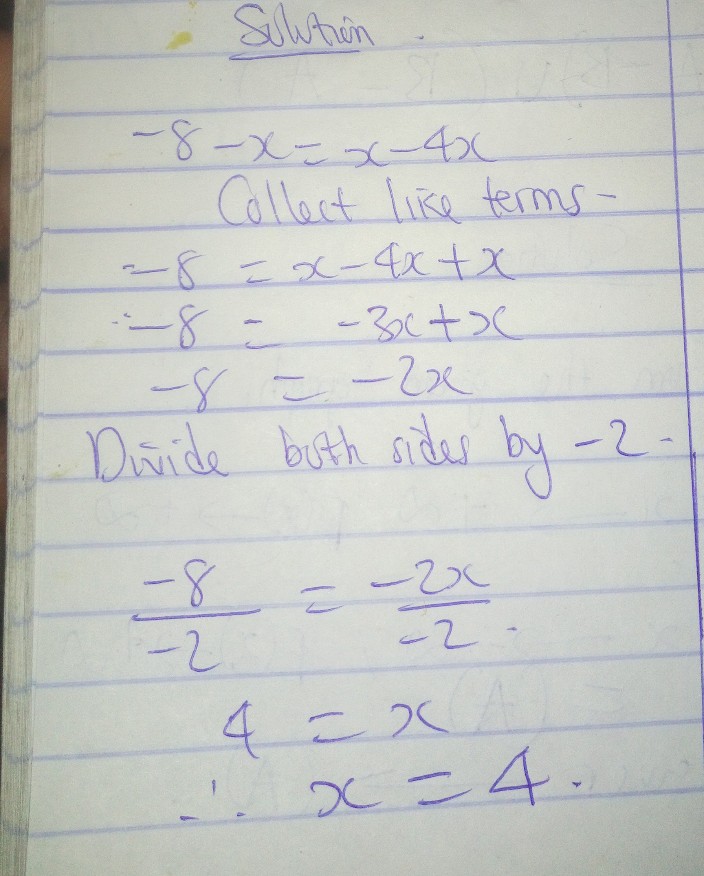 Solution .
-8 - x = x - 4x
Collect like terms -
-8 = x - 4x + x
∴ -8 = -3x + x
-8 = -2x
Divide both sides by -2 -
-8 = -2x
-2 -2 .
4 = x
∴ x = 4 .